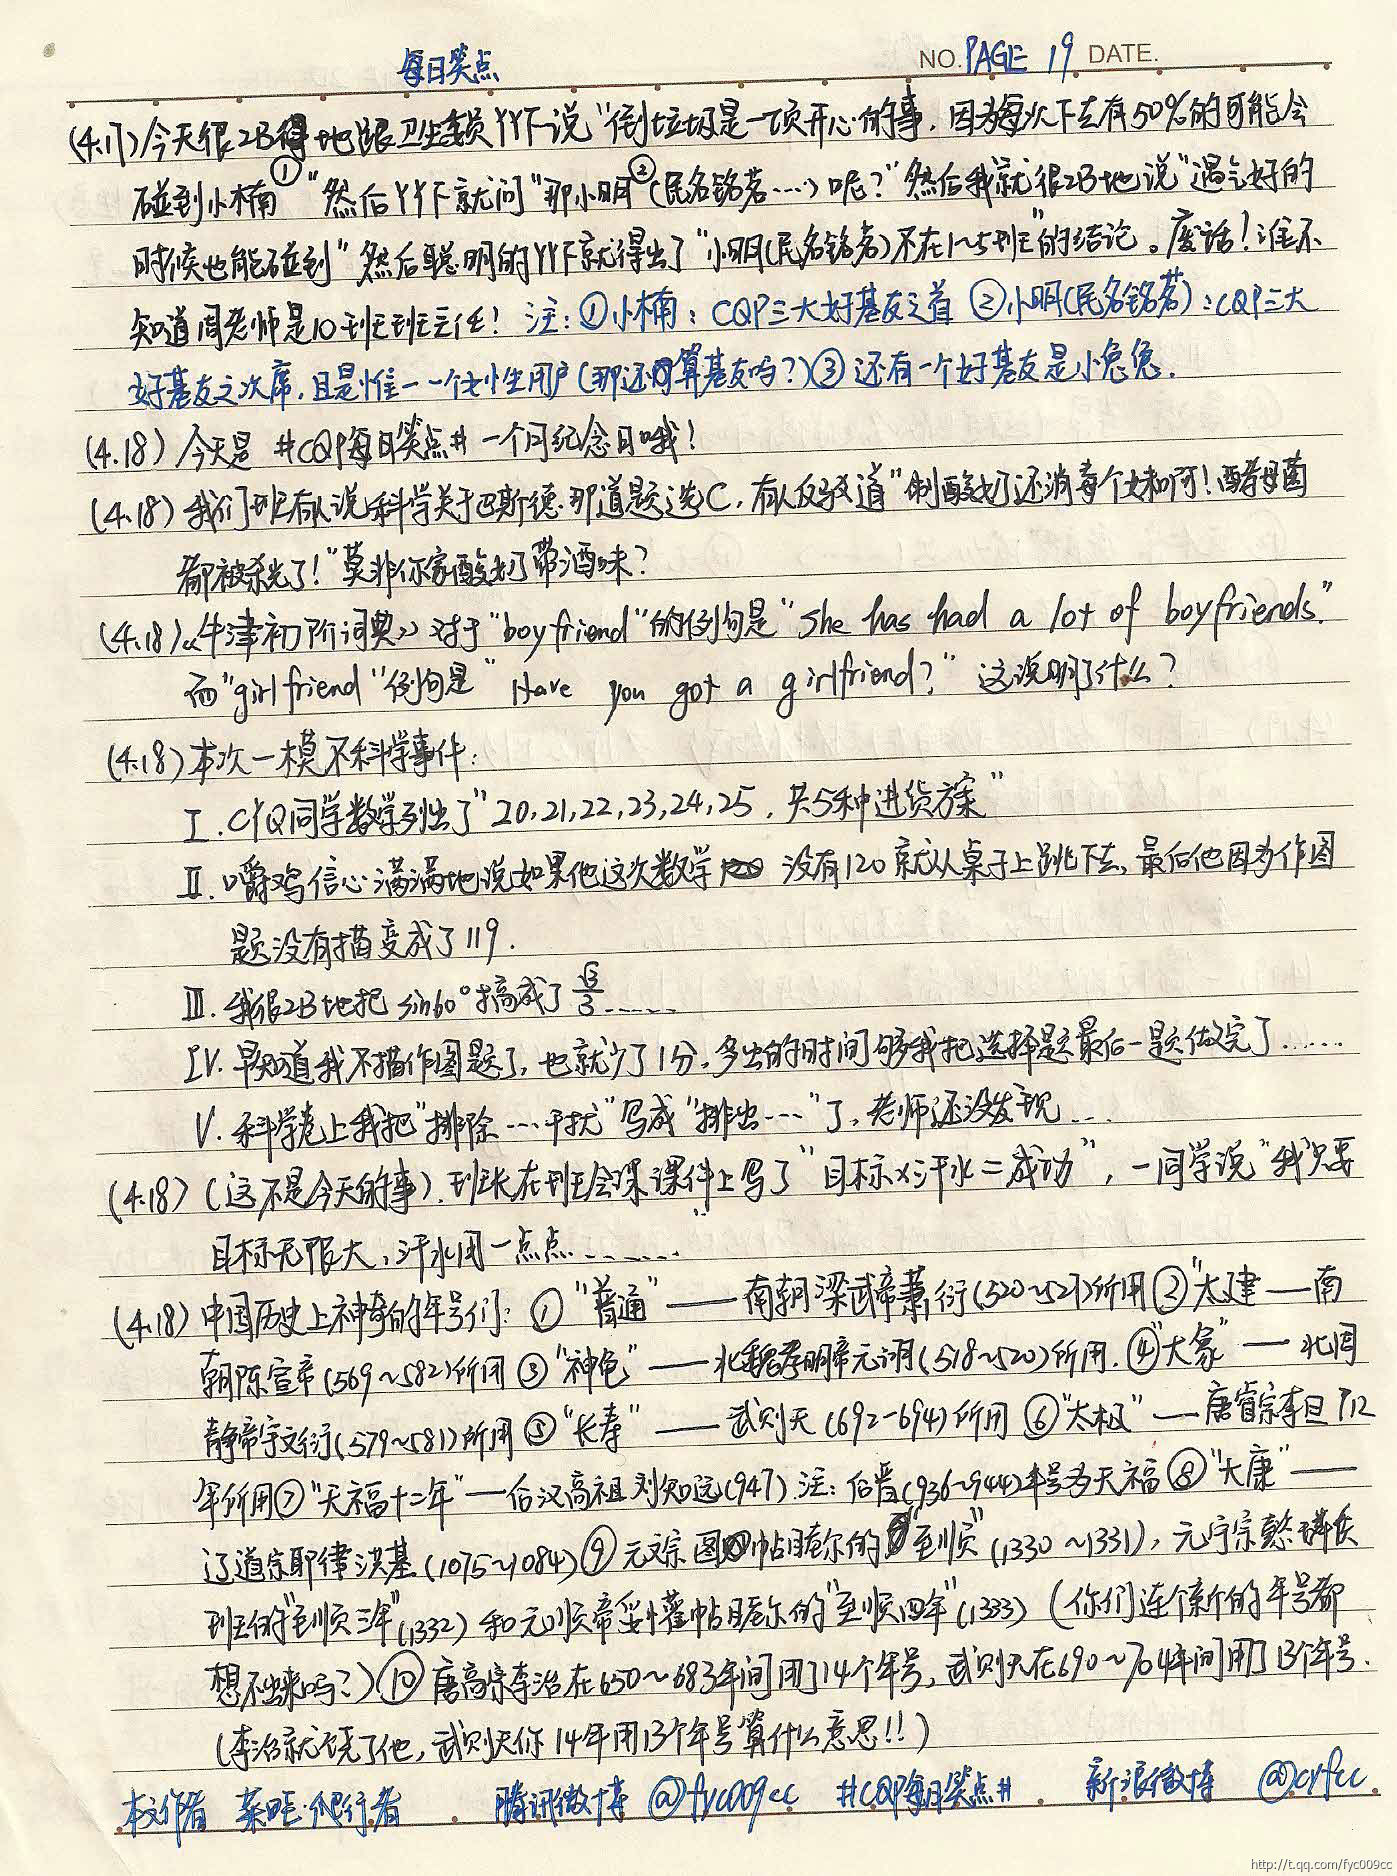 每日笑点
NO. PAGE 19 DATE.
(4.17)今天很2B地跟卫生委员丫丫下说"倒垃圾是一项开心的事,因为每次下去有50%的可能会
碰到小楠①"然后丫丫下就问"那小明②(民名铭茗……)呢?"然后我就很2B地说"遇气好的
时候也能碰到"然后聪明的丫丫下就得出了"小明(民名铭茗)不在1~5班"的结论。废话!谁不
知道周老师是10班班主任! 注:①小楠:CQP三大好基友之首 ②小明(民名铭茗):CQP三大
好基友之次席,且是惟一一个女性用户(那还算基友吗?)③还有一个好基友是小兔兔.
(4.18)今天是 #CQP每日笑点# 一个月纪念日哦!
(4.18)我们班有人说科学关于巴斯德那道题选C,有人反驳道"制酸奶还消毒个妹啊!酵母菌
都被杀光了!"莫非你家酸奶带酒味?
(4.18)《牛津初阶词典》对于"boyfriend"的例句是"She has had a lot of boyfriends."
而"girlfriend"例句是"Have you got a girlfriend?" 这说明了什么?
(4.18)本次一模不科学事件:
I.CYQ同学数学列出了"20,21,22,23,24,25,共5种进货方案"
II.嚼鸡信心满满地说如果他这次数学 没有120就从桌子上跳下去,最后他因为作图
题没有描变成了119.
III.我很2B地把sin60°搞成了√3/3......
IV.早知道我不描作图题了,也就少了1分,多出的时间够我把选择题最后一题做完了......
V.科学卷上我把"排除…干扰"写成"排出…"了,老师还没发现....
(4.18)(这不是今天的事).班长在班会课课件上写了"目标×汗水=成功",一同学说"我只要
目标无限大,汗水用一点点.......
(4.18)中国历史上神奇的年号们:①"普通"——南朝梁武帝萧衍(520~527)所用②"太建——南
朝陈宣帝(569~582)所用③"神龟"——北魏孝明帝元诩(518~520)所用.④"大象"——北周
静帝宇文衍(579~581)所用⑤"长寿"——武则天(692-694)所用⑥"太极"——唐睿宗李旦712
年所用⑦"天福十二年"—后汉高祖刘知远(947).注:后晋(936~944)年号为天福⑧"大康"——
辽道宗耶律洪基(1075~1084)⑨元文宗图帖睦尔的"至顺"(1330~1331),元宁宗懿璘质
班的"至顺三年"(1332)和元顺帝妥懽帖睦尔的"至顺四年"(1333)(你们连个新的年号都
想不出来吗?)⑩唐高宗李治在650~683年间用了14个年号,武则天在690~704年间用了13个年号.
(李治就饶了他,武则天你14年用13个年号算什么意思!!)
本文作者 菜吒·爬行者 腾讯微博 @fyc009cc #CQP每日笑点# 新浪微博 @cyfcc
http://t.qq.com/fyc009cc